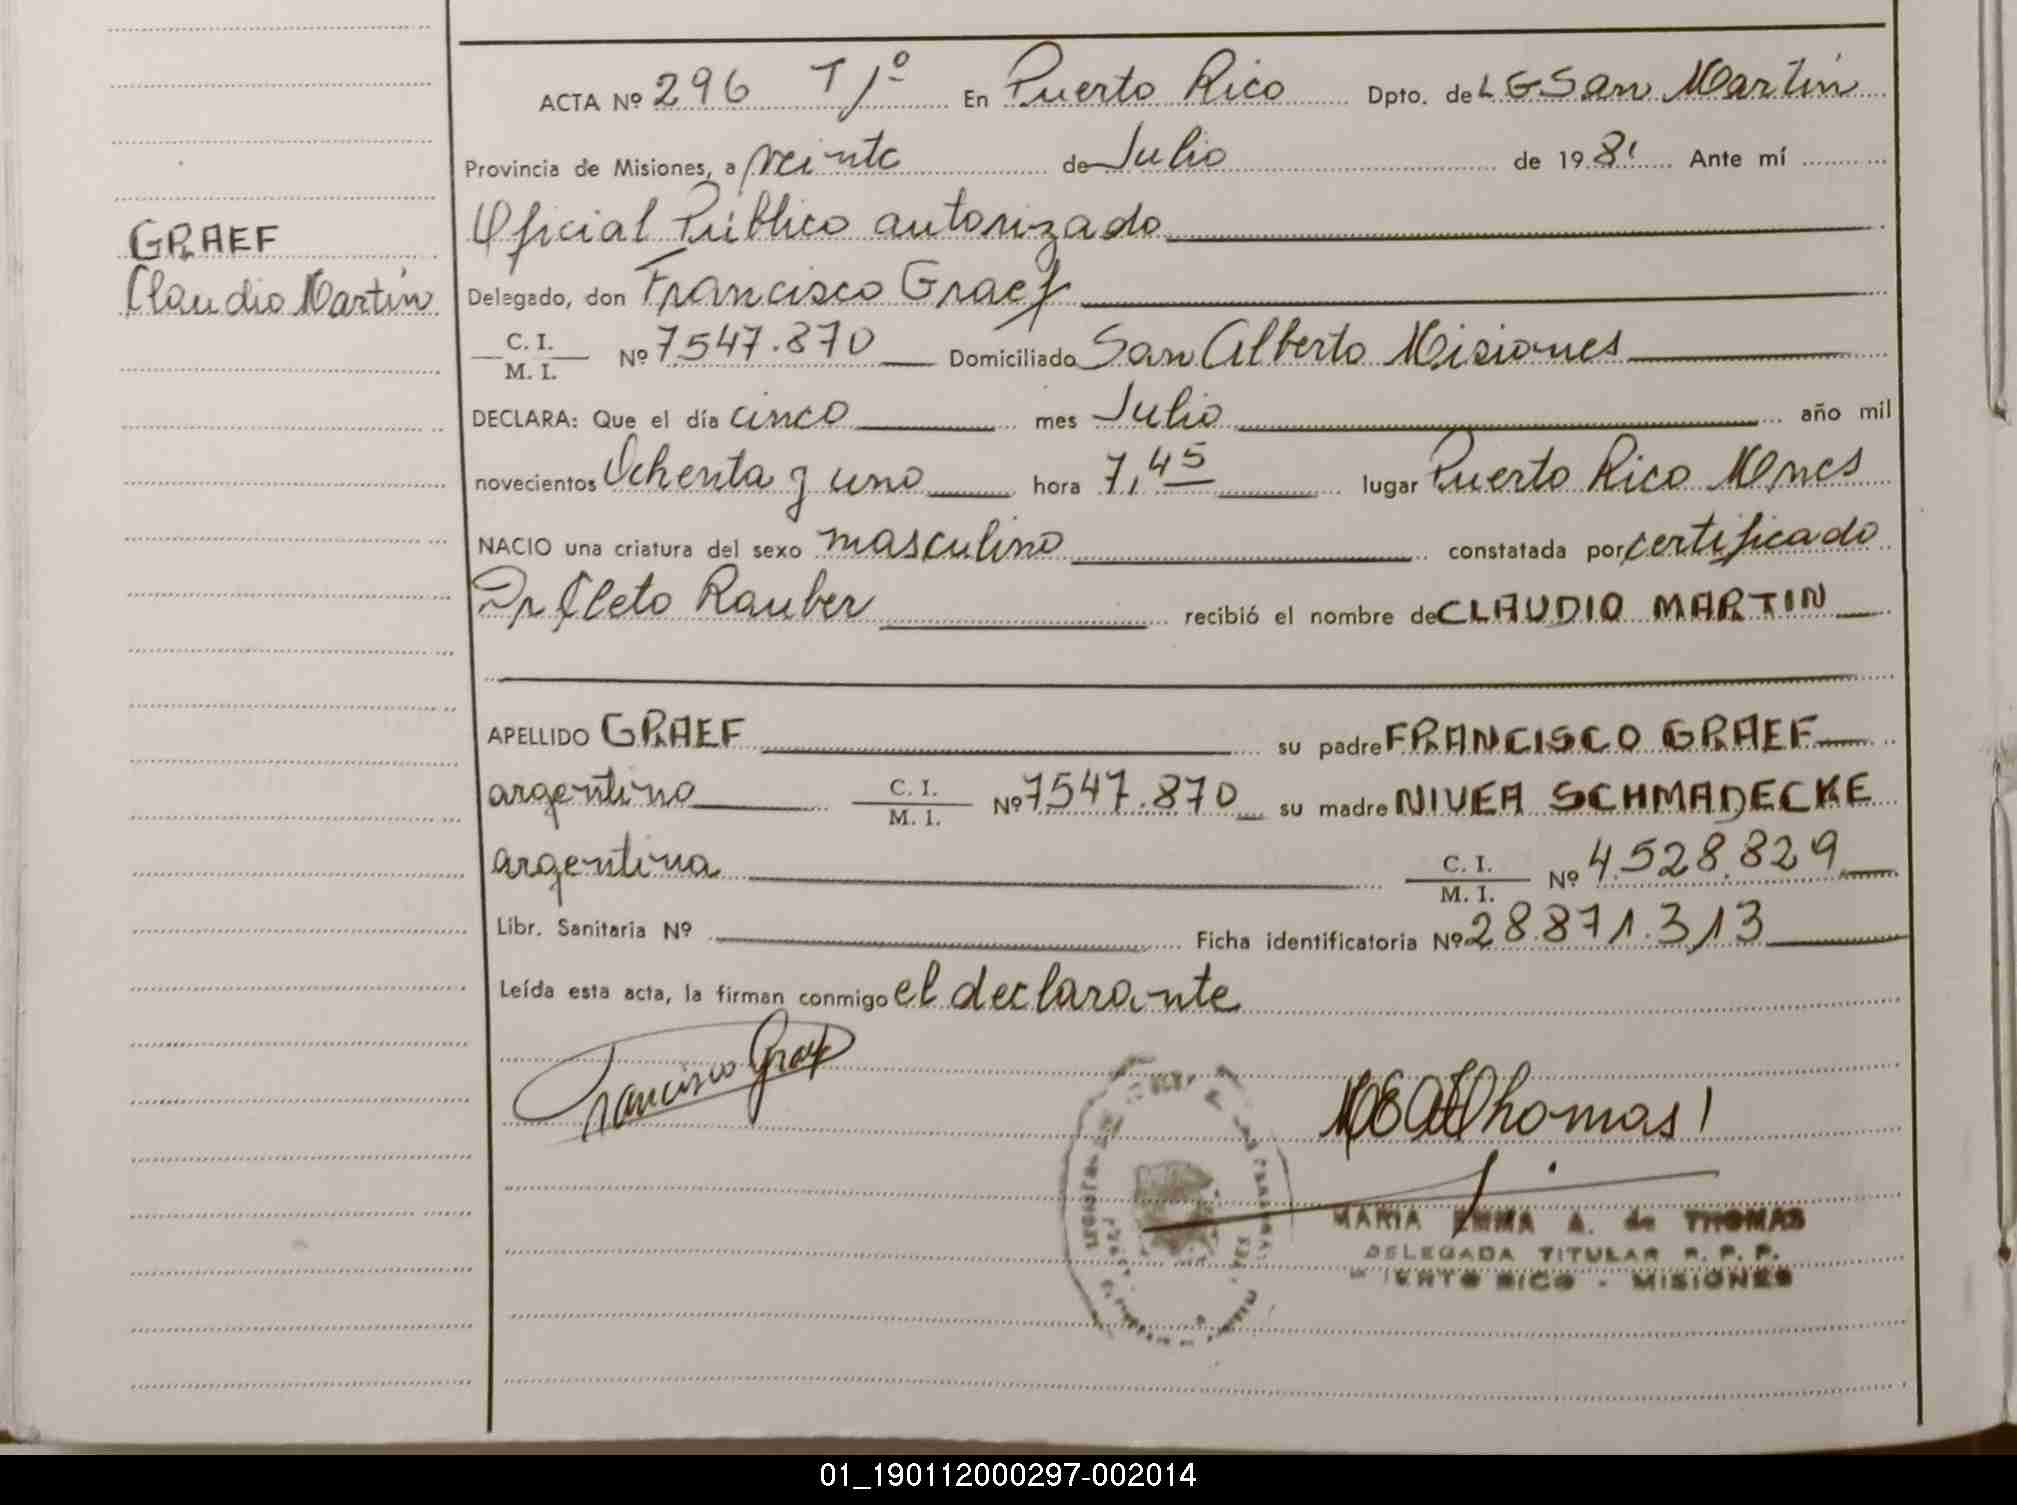 ACTA Nº 296 T/1º En Puerto Rico Dpto. de L G San Martín
Provincia de Misiones, a veinte de Julio de 1981 Ante mí
Oficial Público autorizado
GRAEF
Claudio Martín
Delegado, don Francisco Graef
C. I.
M. I.
Nº 7547.870 Domiciliado San Alberto Misiones
DECLARA: Que el día cinco mes Julio año mil
novecientos Ochenta y uno hora 7,45 lugar Puerto Rico Mnes
NACIO una criatura del sexo masculino constatada por certificado
Dr Cleto Rauber recibió el nombre de CLAUDIO MARTIN
APELLIDO GRAEF su padre FRANCISCO GRAEF
argentino C. I. M. I. Nº 7547.870 su madre NIVEA SCHMADECKE
argentina C. I. M. I. Nº 4.528.829
Libr. Sanitaria Nº Ficha identificatoria Nº 28.871.313
Leída esta acta, la firman conmigo el declarante
Francisco Graef
Thomas
MARIA EMMA A. de THOMAS
DELEGADA TITULAR R. P. P.
PUERTO RICO - MISIONES
01_190112000297-002014